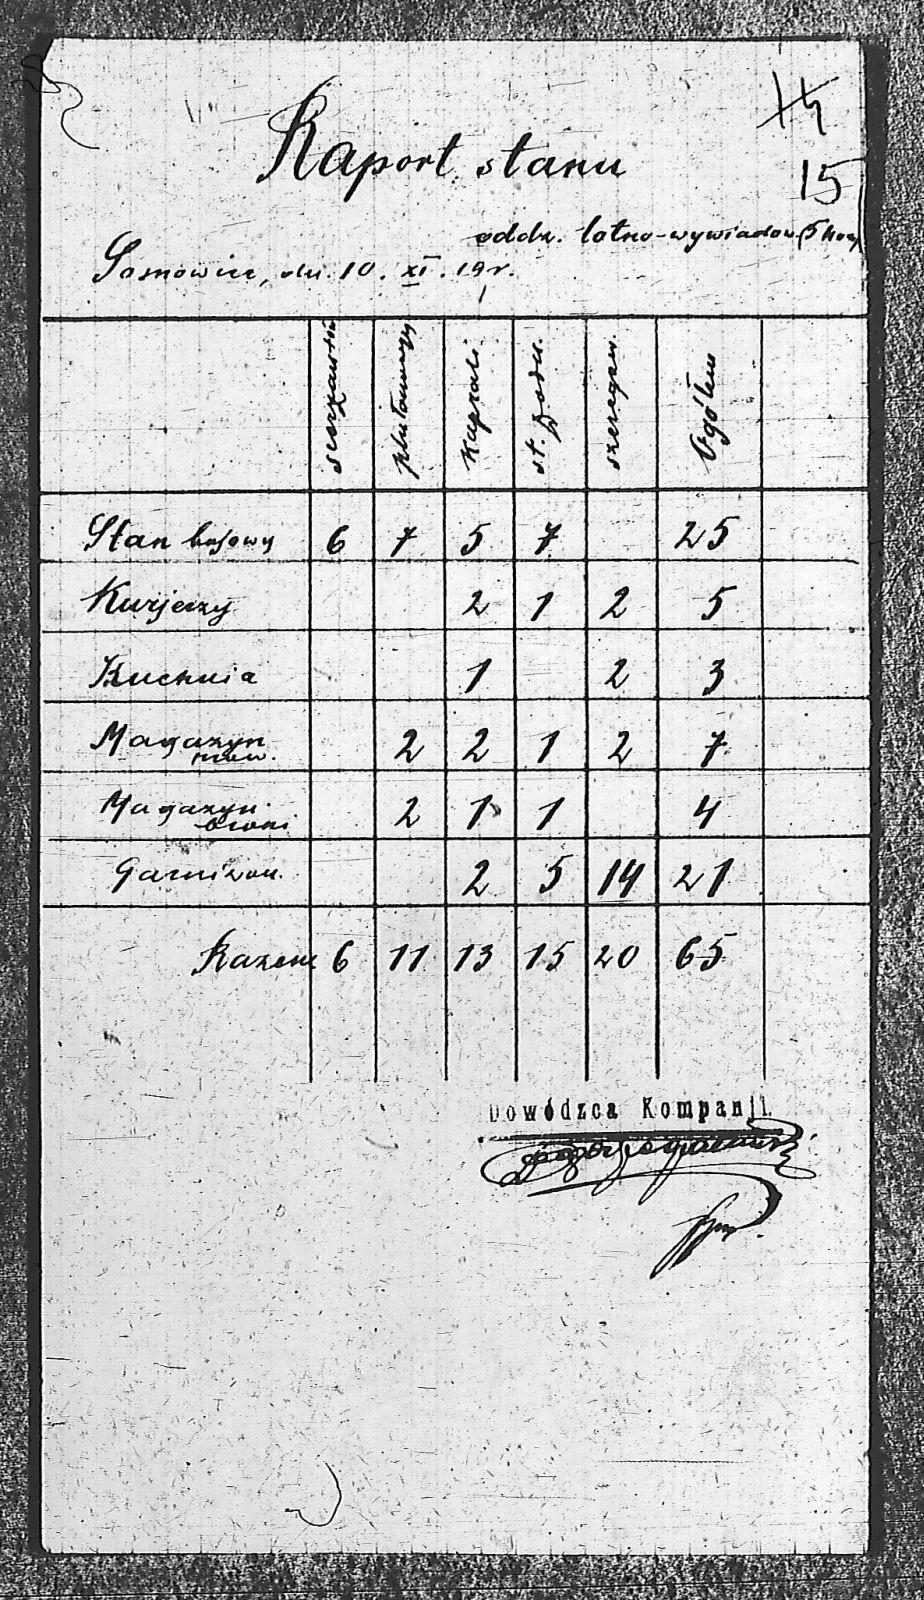 14
15
Raport stanu
oddz. lotno-wywiadow. (5 kom)
Sosnowiec, dn. 10. XI. 19 r.
sierżanci plutonowy kaprali st. żołn. szereg. Ogółem
Stan bojowy 6 7 5 7 25
Kurjerzy 2 1 2 5
Kuchnia 1 2 3
Magazyn 2 2 1 2 7
Magazyn broni 2 1 1 4
Garnizon. 2 5 14 21
Razem 6 11 13 15 20 65
Dowódzca Kompanji.